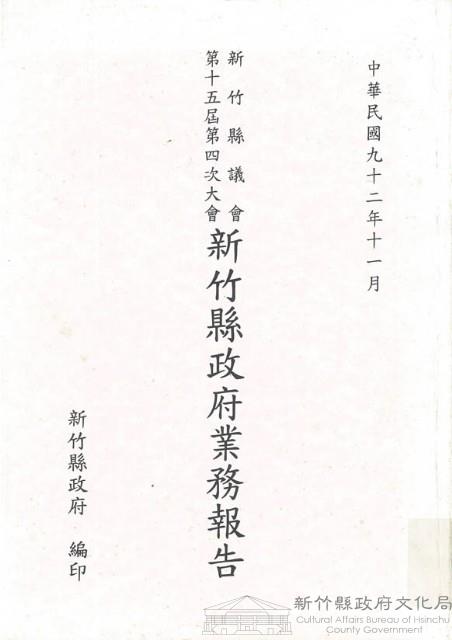 中華民國九十二年十一月
新竹縣議會
第十五屆第四次大會
新竹縣政府業務報告
新竹縣政府 編印
新竹縣政府文化局
Cultural Affairs Bureau of Hsinchu
County Government